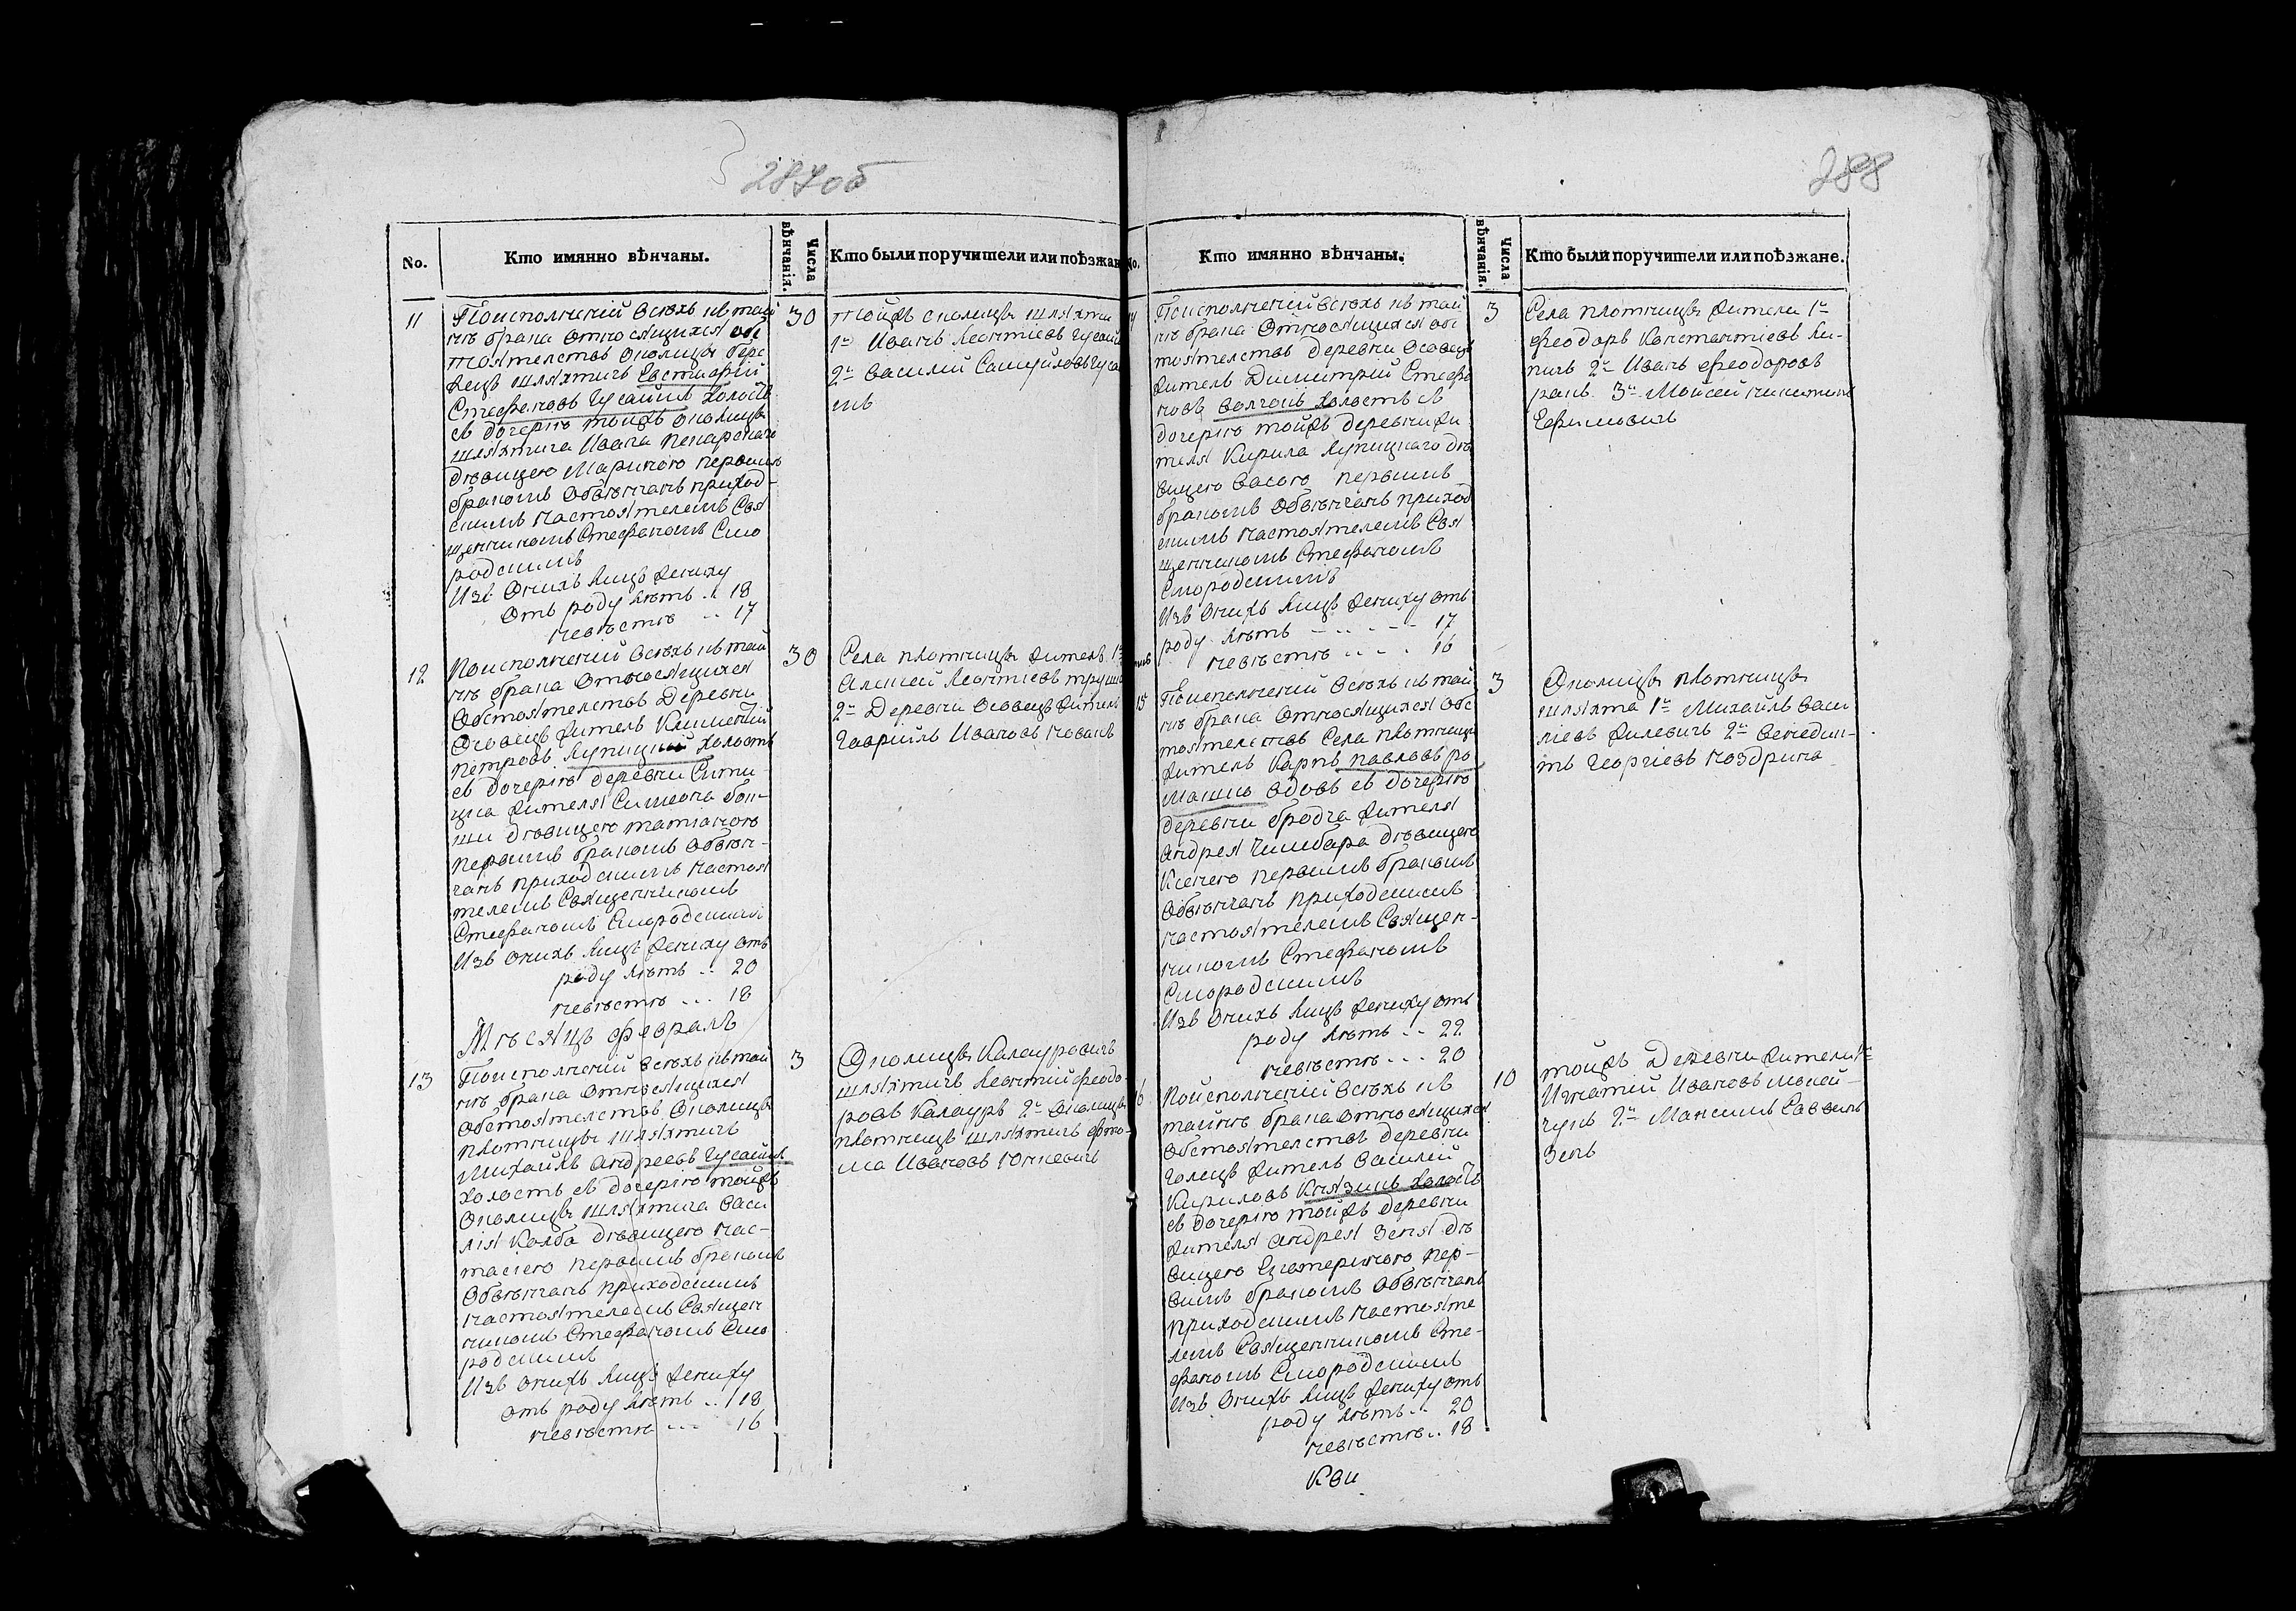 287об
No.
Кто имянно вѣнчаны.
Числа вѣнчанія.
Кто были поручители или поѣзжан
11
По исполненій всѣхъ къ таи
нѣ брака относящихся об
стоятелствъ околицы бере
жецъ шляхтичъ Евстафій
Стефановъ Гусаимъ холостъ
съ дочерію тойжъ околицы
шляхтича Ивана
дѣвицею Мариною первымъ
бракомъ обвѣнчанъ приход-
скимъ настоятелемъ Свя
щенникомъ Стефаномъ Смо
родскимъ
Изъ онихъ лицъ жениху
отъ роду лѣтъ .. 18
невѣстѣ .. 17
30
тойжъ околицы шляхта
1й Иванъ Леонтіевъ
2й Василій Самуйловъ
12
По исполненій всѣхъ къ таи
нѣ брака относящихся
обстоятелствъ деревни
Осовецъ житель Климентій
Петровъ Купицкій холостъ
съ дочерію деревни Сити-
цка жителя Симеона бон-
ши дѣвицею татіаною
первымъ бракомъ обвѣн-
чанъ приходскимъ настоя
телемъ Священникомъ
Стефаномъ Смородскимъ
Изъ онихъ лицъ жениху отъ
роду лѣтъ .. 20
невѣстѣ ... 18
30
Села плотницы житель 1й
Алексей Леонтіевъ
2й деревни Осовецъ житель
Гавріилъ Ивановъ новакъ
Мѣсяцъ февраль
13
По исполненій всѣхъ къ таи
нѣ брака относящихся
обстоятелствъ околицы
плотницы шляхтичъ
Михаилъ Андреевъ Гусаимъ
холостъ съ дочерію тойжъ
околицы шляхтича Васи
лія Колба дѣвицею нас-
тасіею первымъ бракомъ
обвѣнчанъ приходскимъ
настоятелемъ Священ
никомъ Стефаномъ Смо
родскимъ
Изъ онихъ лицъ жениху
отъ роду лѣтъ .. 18
невѣстѣ ... 16
3
Околицы Калауровичъ
шляхтичъ Леонтій феодо-
ровъ Калауръ 2й околицы
плотницъ шляхтичъ фто-
ма Ивановъ Юнкевичъ
288
No.
Кто имянно вѣнчаны.
Числа вѣнчанія.
Кто были поручители или поѣзжане.
По исполненій всѣхъ къ таи
нѣ брака относящихся об
стоятелствъ деревни Осовецъ
житель Димитрій Стефа
новъ Волчокъ холостъ съ
дочерію тойжъ деревни жи
теля Кирила Купицкаго дѣ
вицею Васою первымъ
бракомъ обвѣнчанъ приход
скимъ настоятелемъ Свя
щенникомъ Стефаномъ
Смородскимъ
Изъ онихъ лицъ жениху отъ
роду лѣтъ - .. - - 17
невѣстѣ .. - . 16
3
Села плотницы жители 1й
феодоръ Константіевъ Ли-
2й Иванъ феодоровъ
3й Мойсей никитинъ
Ефимовичъ
15
По исполненій всѣхъ къ таи
нѣ брака относящихся обс
тоятелствъ Села плотницы
житель Карпъ павловъ Ро
машко вдовъ съ дочерію
деревни бродча жителя
Андрея Чимбара дѣвицею
Ксенею первымъ бракомъ
обвѣнчанъ приходскимъ
настоятелемъ Священ-
никомъ Стефаномъ
Смородскимъ
Изъ онихъ лицъ жениху отъ
роду лѣтъ .. 22
невѣстѣ ... 20
3
Околицы плотницы
шляхта 1й Михаилъ Васи
ліевъ Жилевичъ 2й Бенедик-
тъ Георгіевъ ноздрина
6
По исполненій всѣхъ къ
тайнѣ брака относящихся
обстоятелствъ деревни
Голецъ житель Василій
Кириловъ Князикъ холостъ
съ дочерію тойжъ деревни
жителя Андрея Зеня дѣ
вицею Екатериною пер-
вымъ бракомъ обвѣнчанъ
приходскимъ настояте
лемъ Священникомъ Сте-
фаномъ Смородскимъ
Изъ онихъ лицъ жениху отъ
роду лѣтъ .. 20
невѣстѣ .. 18
10
тойжъ деревни жители 1й
Игнатій Ивановъ Мокей-
чукъ 2й Максимъ Саввинъ
Зень
Кви